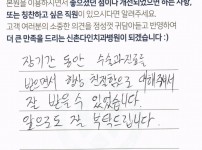 본원을 이용하시면서 좋으셨던 점이나 개선되었으면 하는 사항,
또는 칭찬하고 싶은 직원이 있으시다면 알려주세요.
고객 여러분의 소중한 의견을 정성껏 귀담아듣고 반영하여
더 큰 만족을 드리는 신촌다인치과병원이 되겠습니다 :)
장기간 동안 수술과 진료를
받으면서 항상 친절함으로 대해주셔서
잘 받을 수 있었습니다
앞으로도 잘 부탁드립니다